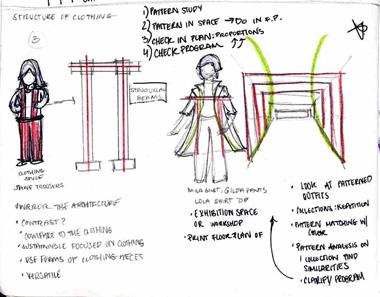 STRUCTURE OF CLOTHING
1) PATTERN STUDY
2) PATTERN IN SPACE → DO IN F.P.
3) CHECK IN PLAN: PROPORTIONS
4) CHECK PROGRAM
3
STRUCTURAL
BEAMS
CLOTHING
TROUSERS
MILA SHIRT, GILDA PANTS
LOLA SHIRT TOP
• EXHIBITION SPACE
OR WORKSHOP
• PRINT FLOOR PLAN OF
• MIRROR THE ARCHITECTURE
• CONTRAST?
COMPARE TO THE CLOTHING
• SUSTAINABLE FOCUSED IN CLOTHING
• USE FORMS OF CLOTHING PIECES
• VERSATILE
• LOOK AT PATTERNED
OUTFITS
• COLLECTIONS: REPETITION
• PATTERN MATCHING W/
COLOR
• PATTERN ANALYSIS ON
1 COLLECTION AND
SIMILARITIES
• CLARIFY PROGRAM